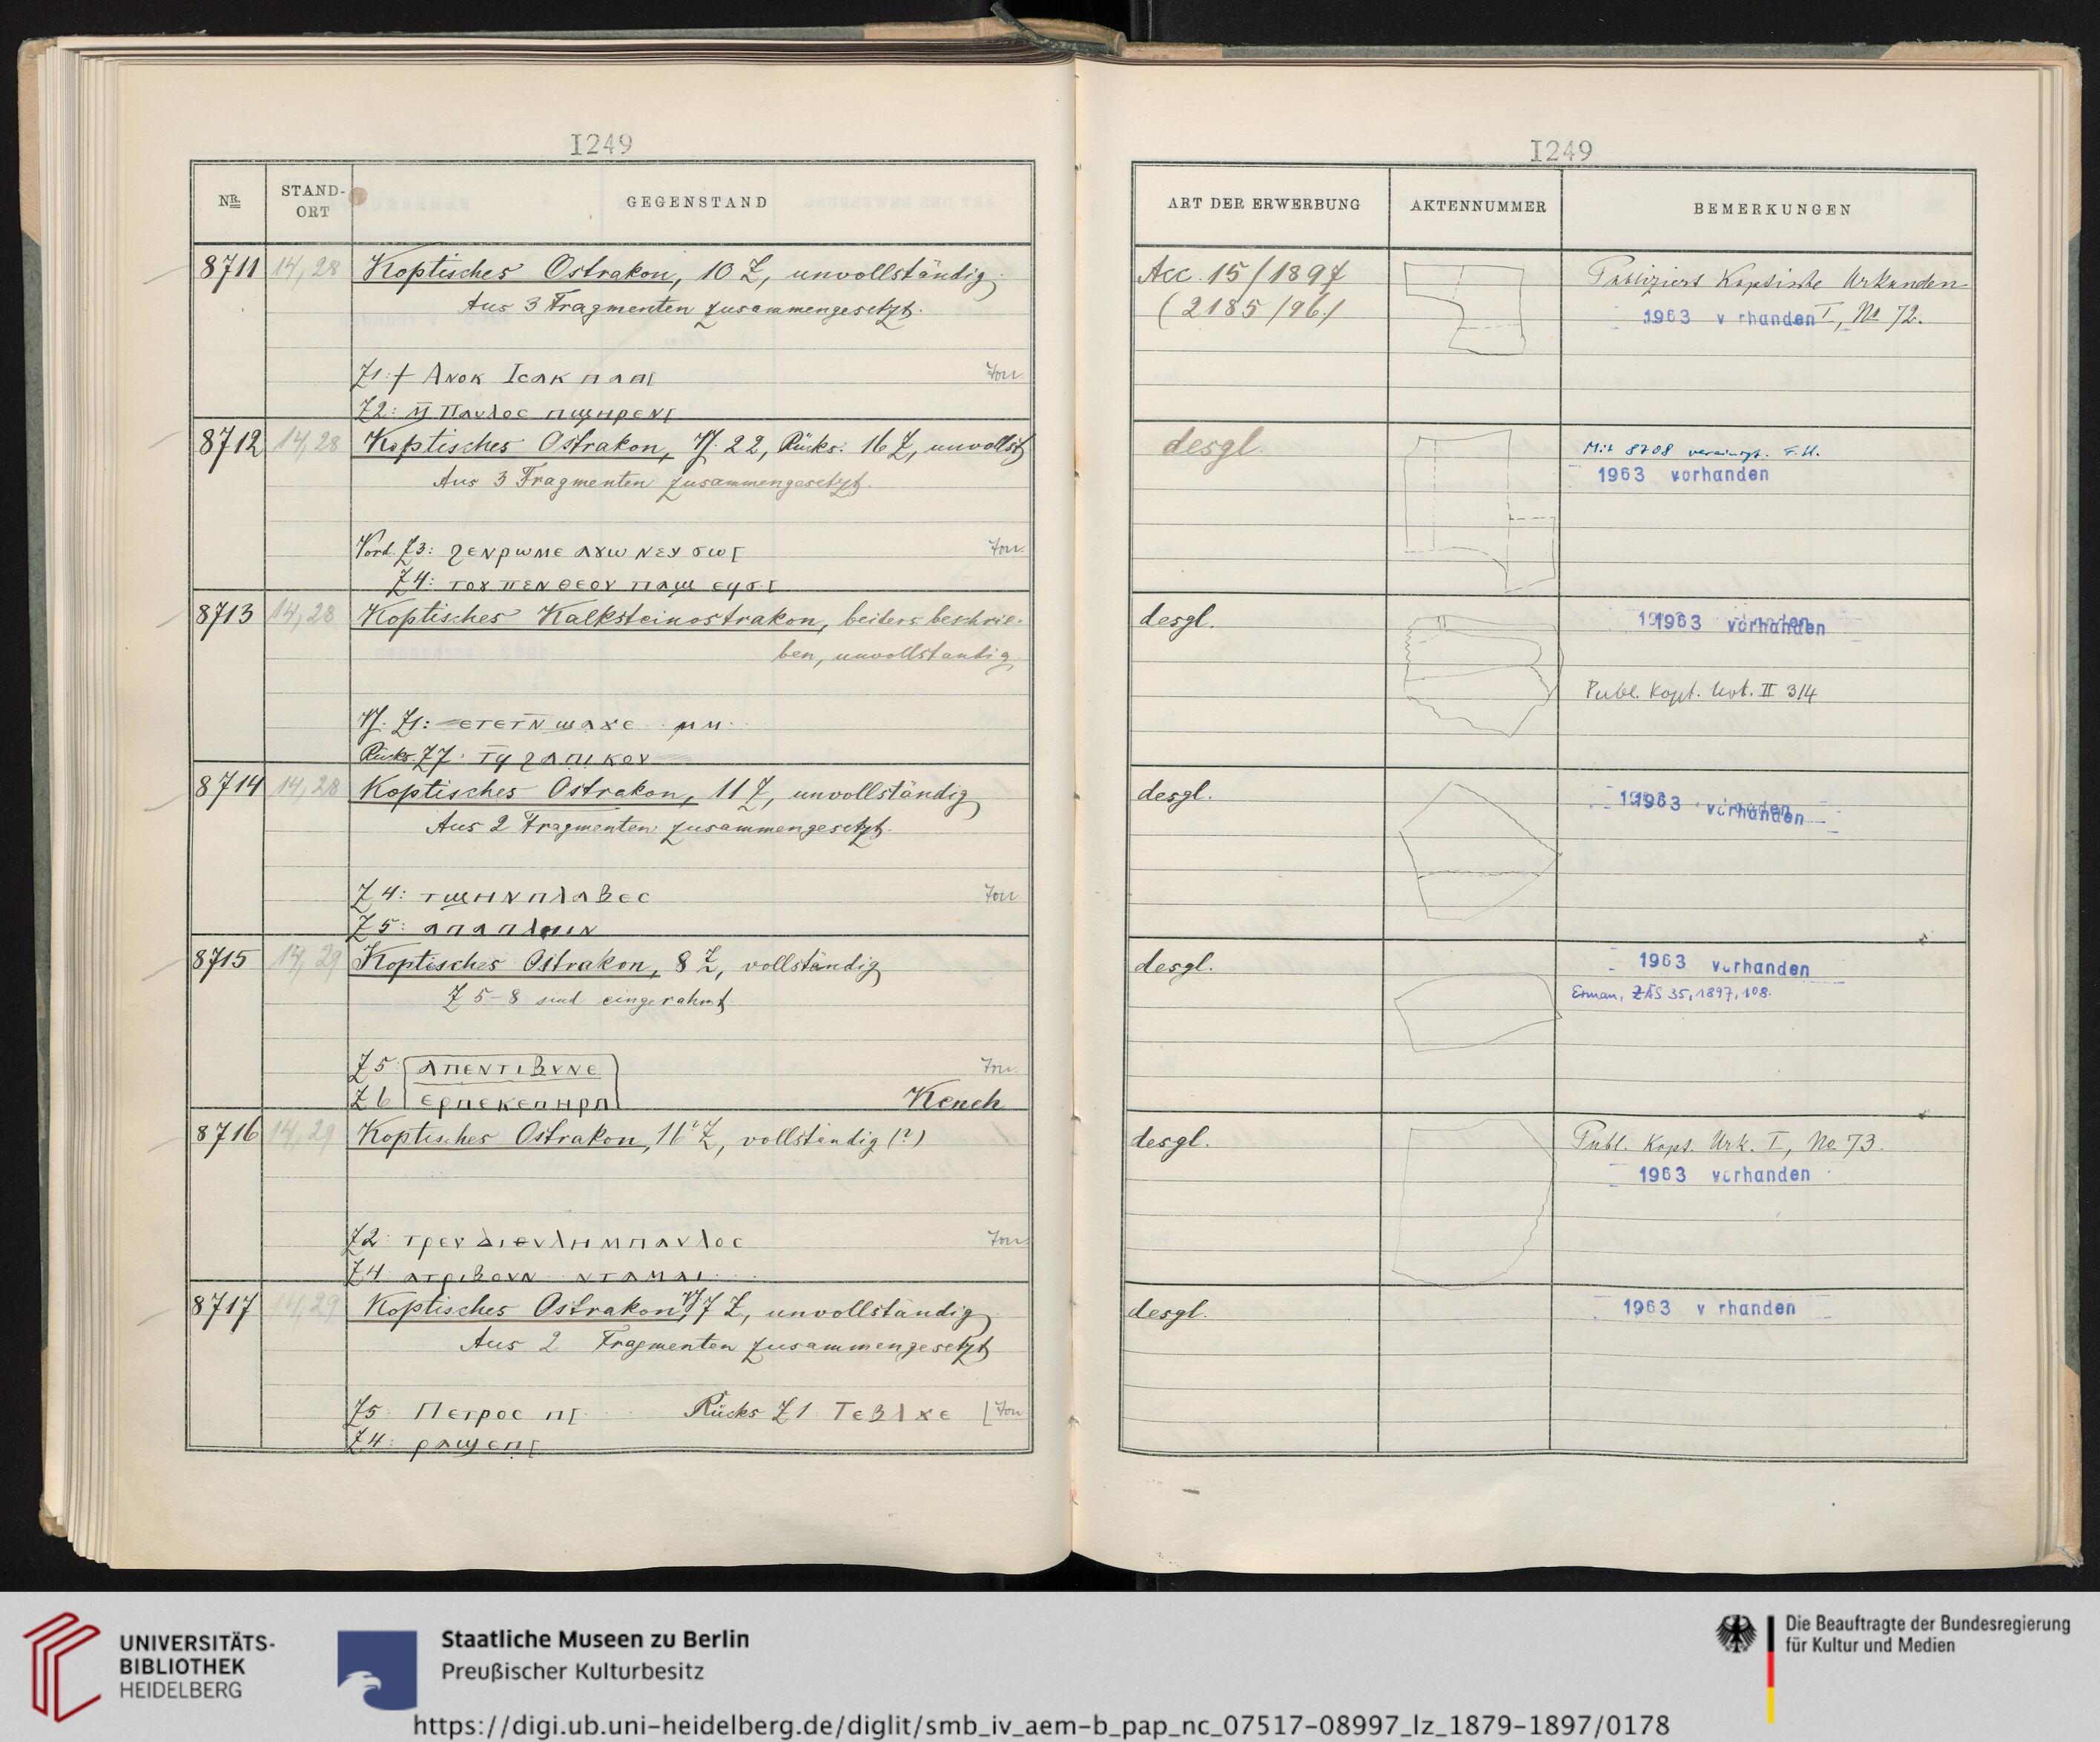 1249
NR.
STAND-
ORT
GEGENSTAND
8711 14,28 Koptisches Ostrakon, 10 Z, unvollständig
Aus 3 Fragmenten zusammengesetzt.
Z1: † Ⲁⲛⲟⲕ Ⲓⲥⲁⲕ ⲡⲁⲡ[ Ton
Z2: Ⲡⲁⲩⲗⲟⲥ ⲡϣⲏⲣⲉⲛ[
8712 14,28 Koptisches Ostrakon, Vf. 22, Rücks. 16 Z, unvollst
Aus 3 Fragmenten zusammengesetzt.
Vord. Z3: ϩⲉⲛⲣⲱⲙⲉ ⲁⲩⲱ ⲛⲉⲩ ϭⲱ[ Ton
Z4: ⲧⲟⲩ ⲡⲉⲛ ⲑⲉⲟⲩ ⲡⲁϣ
8713 14,28 Koptisches Kalksteinostrakon, beiders. beschrie-
ben, unvollständig
Vf. Z1: ⲉⲧⲉⲧⲛ̄ ϣⲁϫⲉ
Rücks. Z7:
8714 14,28 Koptisches Ostrakon, 11 Z, unvollständig
Aus 2 Fragmenten zusammengesetzt.
Z4: ⲧϣⲏⲛⲡⲗⲁⲃⲉⲥ Ton
Z5:
8715 14,29 Koptisches Ostrakon, 8 Z, vollständig
Z 5-8 sind eingerahmt
Z5 ⲁⲡⲉⲛⲧⲓⲃⲩⲛⲉ Ton
Z6 ⲉⲣⲡⲉⲕⲉⲡⲏⲣⲡ Keneh
8716 14,29 Koptisches Ostrakon, 16 Z, vollständig (?)
Z2: ⲧⲣⲉⲩ Ton
Z4: ⲁⲧⲣⲓⲃⲟⲩⲛ ⲛⲧⲁⲙⲁⲓ
8717 14,29 Koptisches Ostrakon, Vf 7 Z, unvollständig
Aus 2 Fragmenten zusammengesetzt
Z5: Ⲡⲉⲧⲣⲟⲥ ⲡ[ Rücks Z1 Ⲧⲉⲃⲗϫⲉ [Ton
Z4: ⲣⲁϣⲉⲡ[
1249
ART DER ERWERBUNG
AKTENNUMMER
BEMERKUNGEN
Acc. 15/1897 Publiziert Koptische Urkunden
(2185/96) 1963 v rhanden I, No 72.
desgl. Mit 8708 vereinigt. F.H.
1963 vorhanden
desgl. 1963 vorhanden
Publ. Kopt. Urk. II 314
desgl. 1963 vorhanden
desgl. 1963 vorhanden
Erman, ZÄS 35, 1897, 108.
desgl. Publ. Kopt. Urk. I, No 73.
1963 vorhanden
desgl. 1963 v rhanden
UNIVERSITÄTS-
BIBLIOTHEK
HEIDELBERG
Staatliche Museen zu Berlin
Preußischer Kulturbesitz
Die Beauftragte der Bundesregierung
für Kultur und Medien
https://digi.ub.uni-heidelberg.de/diglit/smb_iv_aem-b_pap_nc_07517-08997_lz_1879-1897/0178